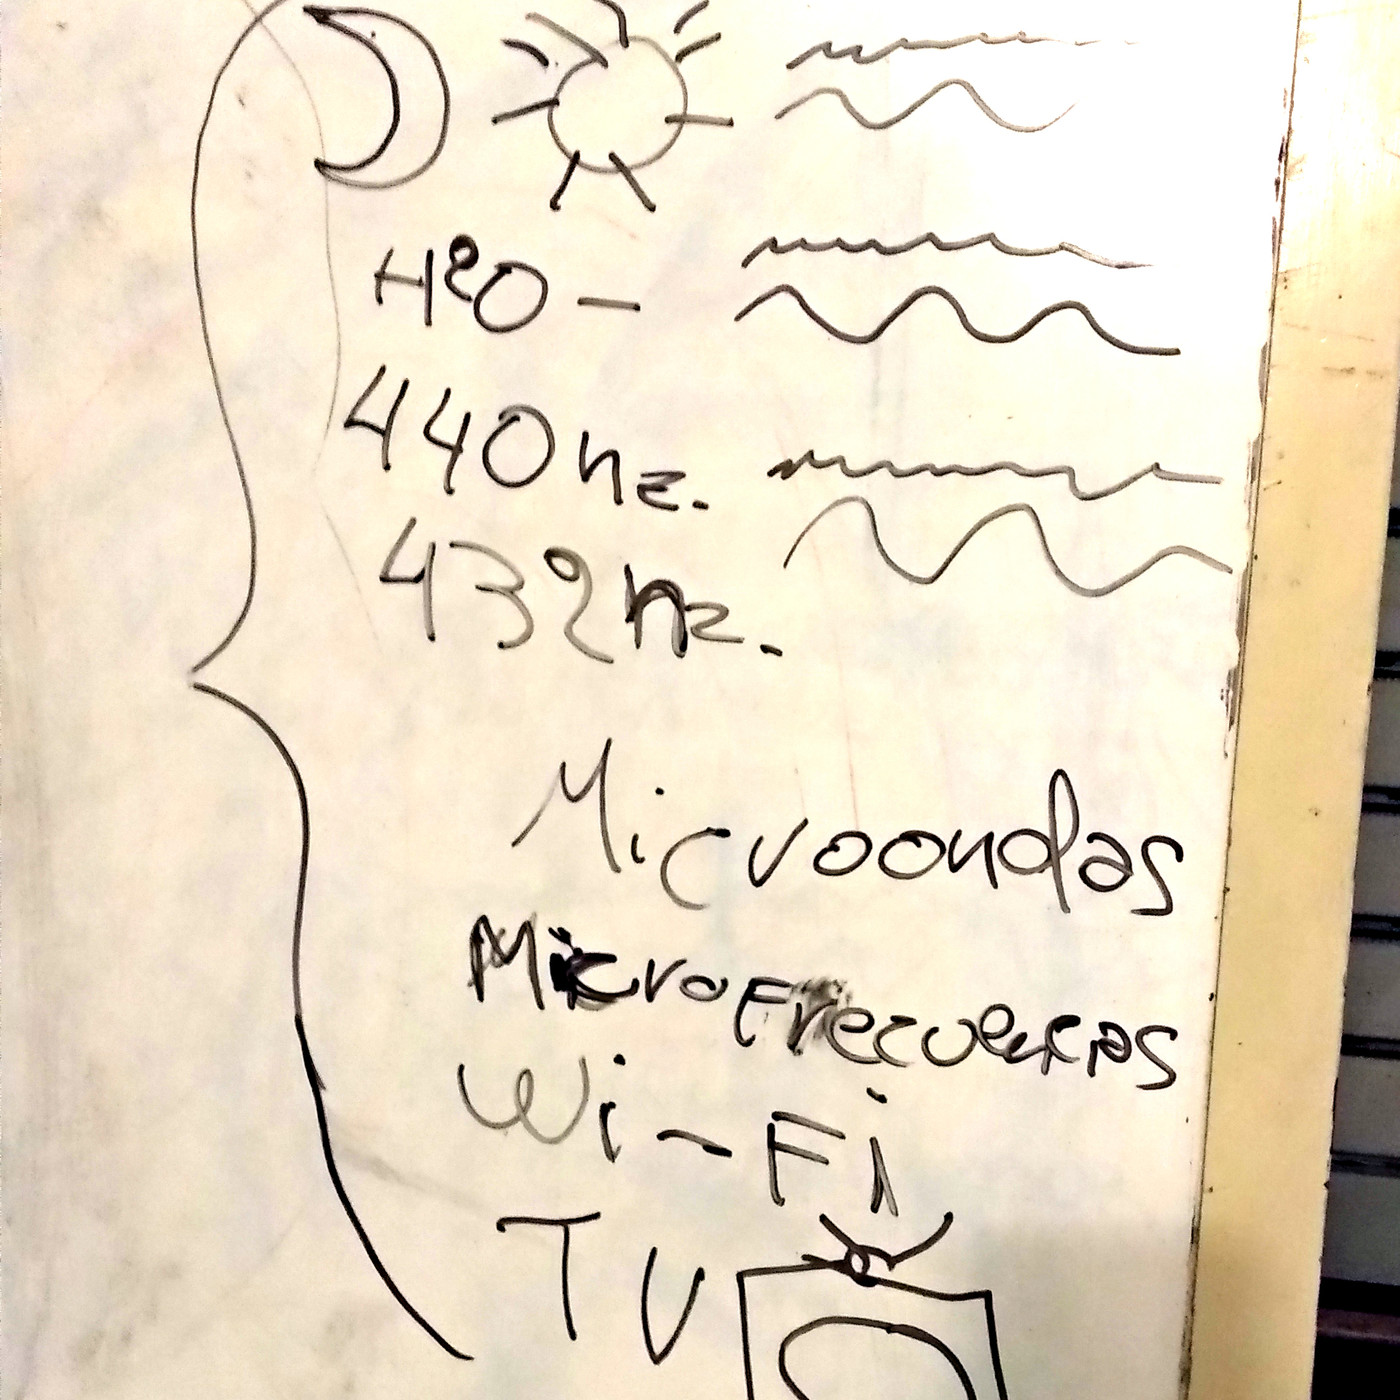 H²O -
440hz.
432hz.
Microondas
Microfrecuencias
Wi-Fi
TV